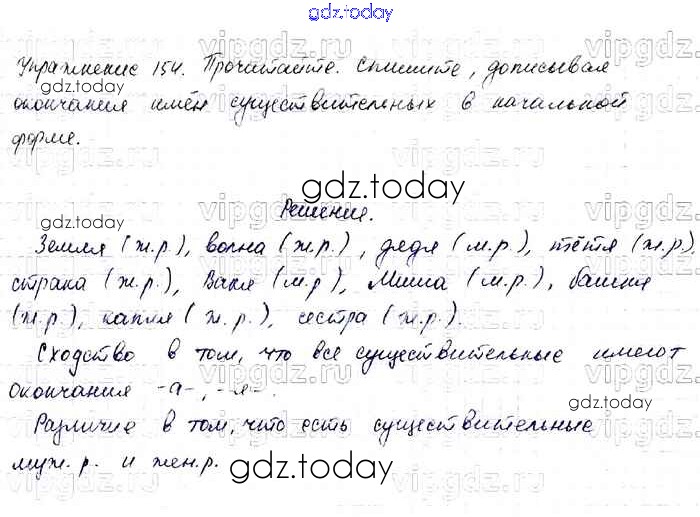 gdz.today
Упражнение 154. Прочитайте. Спишите, дописывая
gdz.today
окончания имён существительных в начальной
форме.
gdz.today
Решение.
gdz.today
Земля (ж.р.), волна (ж.р.), дядя (м.р.), тётя (ж.р.),
страна (ж.р.), Ваня (м.р), Миша (м.р.), башня
(ж.р.), капля (ж.р.), сестра (ж.р.).
Сходство в том, что все существительные имеют
окончания -а-, -я-.
gdz.today
Различие в том, что есть существительные
муж.р. и жен.р.
gdz.today